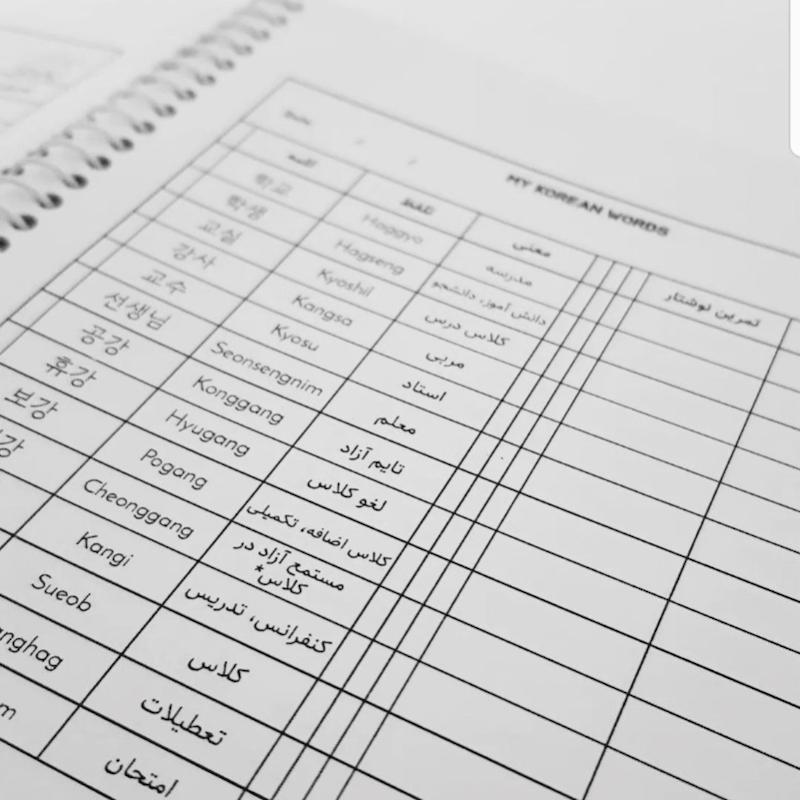 MY KOREAN WORDS
Date / /
کلمه تلفظ معنی تمرین نوشتار
학교 Haggyo مدرسه
학생 Hagseng دانش آموز، دانشجو
교실 Kyoshil کلاس درس
강사 Kangsa مربی
교수 Kyosu استاد
선생님 Seonsengnim معلم
공강 Konggang تایم آزاد
휴강 Hyugang لغو کلاس
보강 Pogang کلاس اضافه، تکمیلی
강 Cheonggang مستمع آزاد در
کلاس*
Kangi کنفرانس، تدریس
Sueob کلاس
nghag تعطیلات
m امتحان